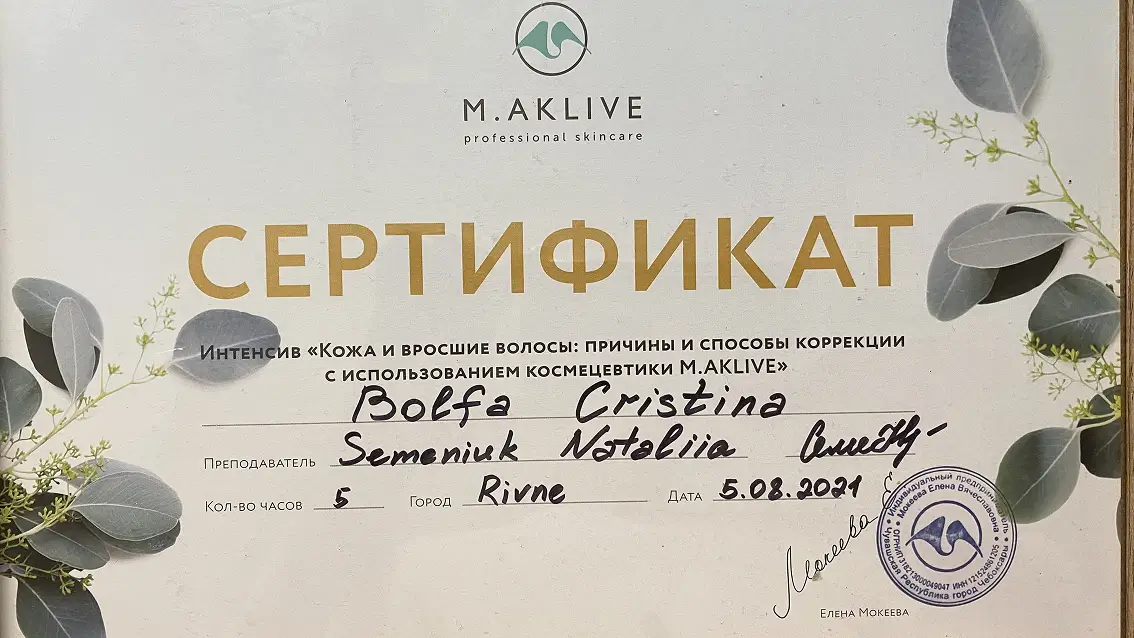 M.AKLIVE
professional skincare
СЕРТИФИКАТ
Интенсив «Кожа и вросшие волосы: причины и способы коррекции
с использованием космецевтики M.AKLIVE»
Bolfa Cristina
Преподаватель Semeniuk Nataliia
Кол-во часов 5 Город Rivne Дата 5.08.2021
Мокеева
Индивидуальный предприниматель
Мокеева Елена Вячеславовна
ОГРНИП 318213000049047 ИНН 121524861205
Чувашская Республика город Чебоксары
Елена Мокеева